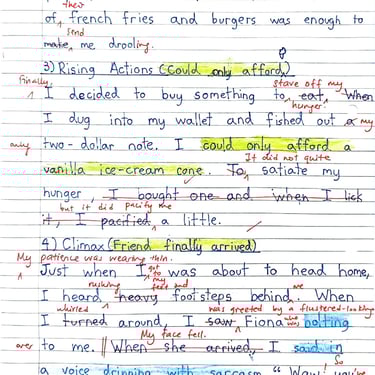 their
of french fries and burgers was enough to
send
make me drooling.
3) Rising Actions (Could only afford)
Finally, stave off my
I decided to buy something to eat. When
hunger.
I dug into my wallet and fished out a my
only two-dollar note. I could only afford a
It did not quite
vanilla ice-cream cone. To satiate my
hunger, I bought one and when I lick
but it did pacify me
it, I pacified a little.
4) Climax (Friend finally arrived)
My patience was wearing thin.
Just when I was about to head home,
rushing me
I heard heavy footsteps behind. When
whirled was greeted by a flustered-looking
I turned around, I saw Fiona who was
My face fell.
over to me. When she arrived, I said in
So
a voice dripping with sarcasm "Wow! you're